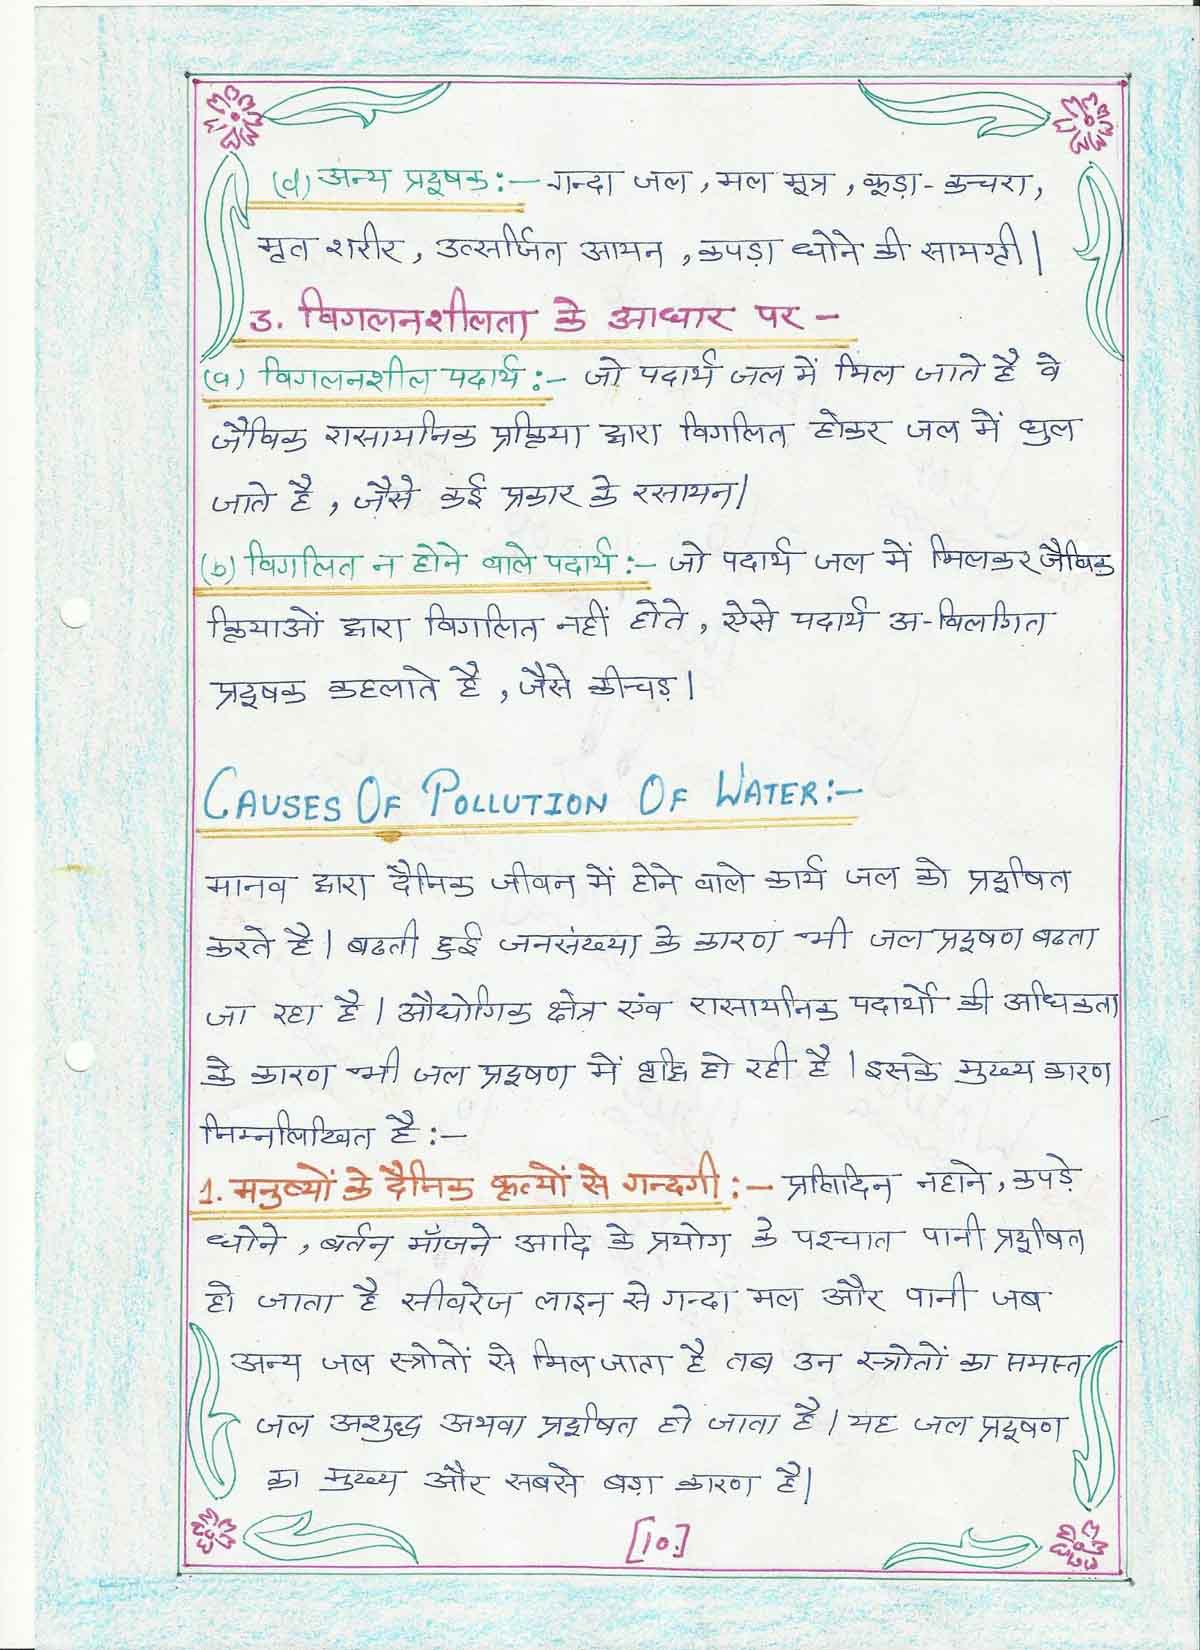 (d) अन्य प्रदूषक :- गन्दा जल, मल मूत्र, कूड़ा-कचरा,
मृत शरीर, उत्सर्जित आयन, कपड़ा धोने की सामग्री।
3. विगलनशीलता के आधार पर -
(a) विगलनशील पदार्थ :- जो पदार्थ जल में मिल जाते है वे
जैविक रासायनिक प्रक्रिया द्वारा विगलित होकर जल में घुल
जाते है, जैसे कई प्रकार के रसायन।
(b) विगलित न होने वाले पदार्थ :- जो पदार्थ जल में मिलकर जैविक
क्रियाओं द्वारा विगलित नहीं होते, ऐसे पदार्थ अ-विलगित
प्रदूषक कहलाते है, जैसे कीचड़।
CAUSES OF POLLUTION OF WATER:-
मानव द्वारा दैनिक जीवन में होने वाले कार्य जल को प्रदूषित
करते है। बढती हुई जनसंख्या के कारण भी जल प्रदूषण बढता
जा रहा है। औद्योगिक क्षेत्र एंव रासायनिक पदार्थो की अधिकता
के कारण भी जल प्रदूषण में वृद्धि हो रही है। इसके मुख्य कारण
निम्नलिखित है :-
1. मनुष्यों के दैनिक कृत्यों से गन्दगी :- प्रतिदिन नहाने, कपड़े
धोने, बर्तन माँजने आदि के प्रयोग के पश्चात पानी प्रदूषित
हो जाता है सीवरेज लाइन से गन्दा मल और पानी जब
अन्य जल स्त्रोतों से मिल जाता है तब उन स्त्रोतों का समस्त
जल अशुद्ध अथवा प्रदूषित हो जाता है। यह जल प्रदूषण
का मुख्य और सबसे बड़ा कारण है।
[10.]